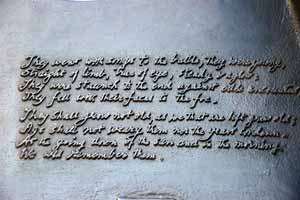 They went with songs to the battle, They were young,
Straight of limb, True of eye, steady & aglow;
They were staunch to the end against odds uncounted,
They fell with their faces to the foe.
They shall grow not old, as we that are left grow old;
Age shall not weary them nor the years condemn.
At the going down of the sun and in the morning,
We will remember them.